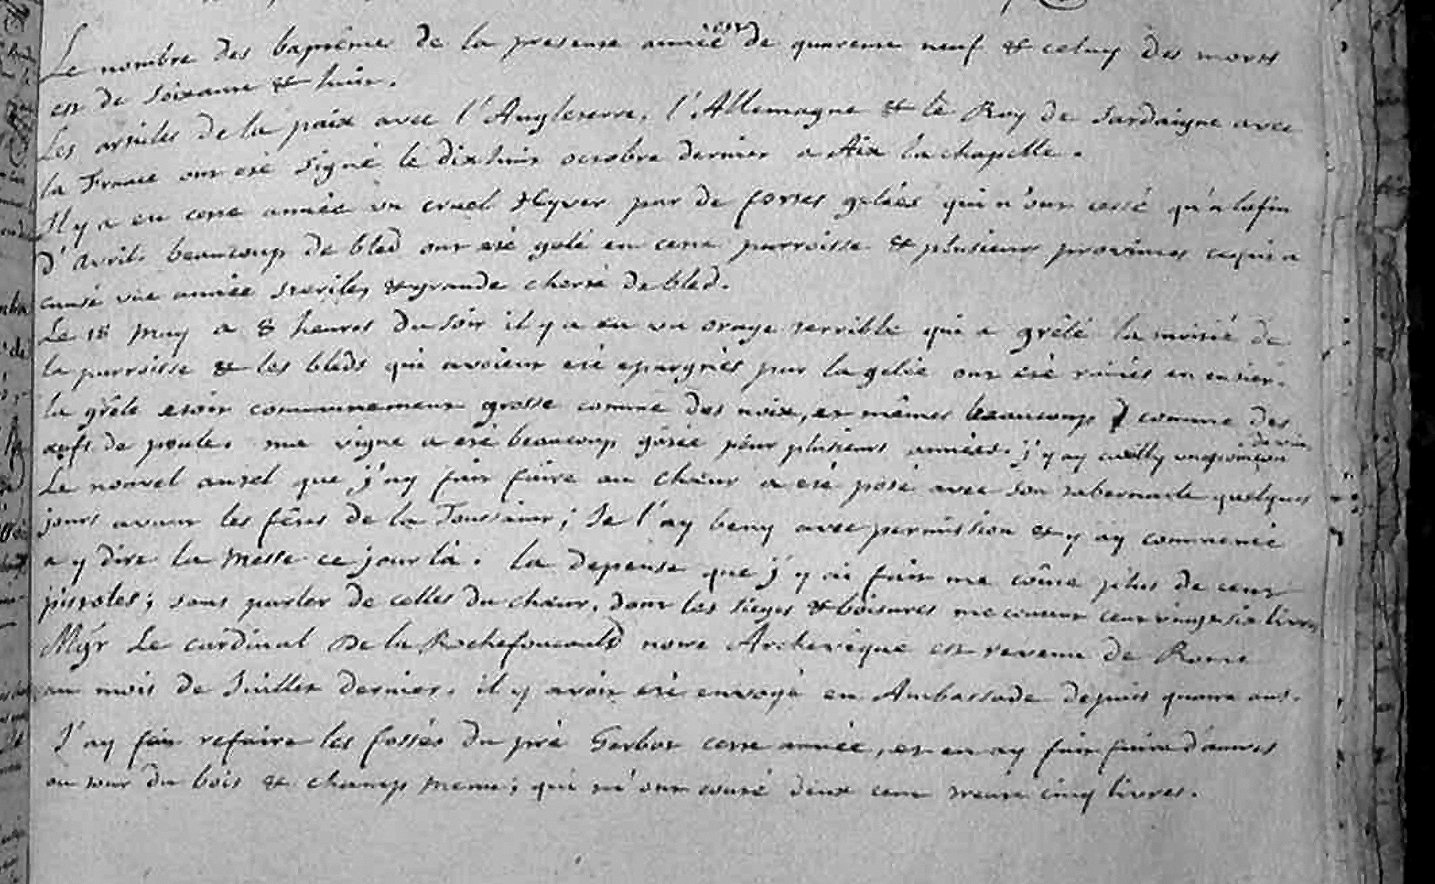 Le nombre des baptêmes de la presente année est de quarente neuf & celuy des morts
est de soixante & huit.
Les articles de la paix avec l'Angleterre, l'Allemagne & le Roy de Sardaigne avec
la France ont eté signé le dixhuit octobre dernier a Aix la chapelle.
Il y a eu cette année un cruel Hyver par de fortes gelées qui n'ont cessé qu'a la fin
d'Avril. beaucoup de bled ont eté gelé en cette parroisse & plusieurs provinces ce qui a
causé une année sterile, & grande cherté de bled.
Le 18 may a 8 heures du soir il y a eu un orage terrible qui a grêlé la moitié de
la parroisse & les bleds qui avoient eté epargnés par la gelée ont été ruinés en entier.
la grêle etoit communement grosse comme des noix, et mêmes beaucoup comme des
œufs de poule. ma vigne a eté beaucoup gâtée pour plusieurs années. j'y ay cueilly un poinçon de vin
Le nouvel autel que j'ay fait faire au chœur a eté posé avec son tabernacle quelques
jours avant les fêtes de la Toussaint; Je l'ay beny avec permission & y ay commencé
a y dire la Messe ce jour là. la depense que j'y ai fait me coûte plus de cent
pistoles; sans parler de celles du chœur, dont les sieges & boisures me coutent cent vingt six livres
Mgr Le cardinal De la Rochefoucauld notre Archevêque est revenu de Rome
au mois de Juillet dernier. il y avoit eté envoyé en Ambassade depuis quatre ans.
J'ay fait refaire les fossés du pré Gerbot cette année, et en ay fait faire d'autres
au tour du bois & champ meme; qui m'ont couté deux cent trente cinq livres.